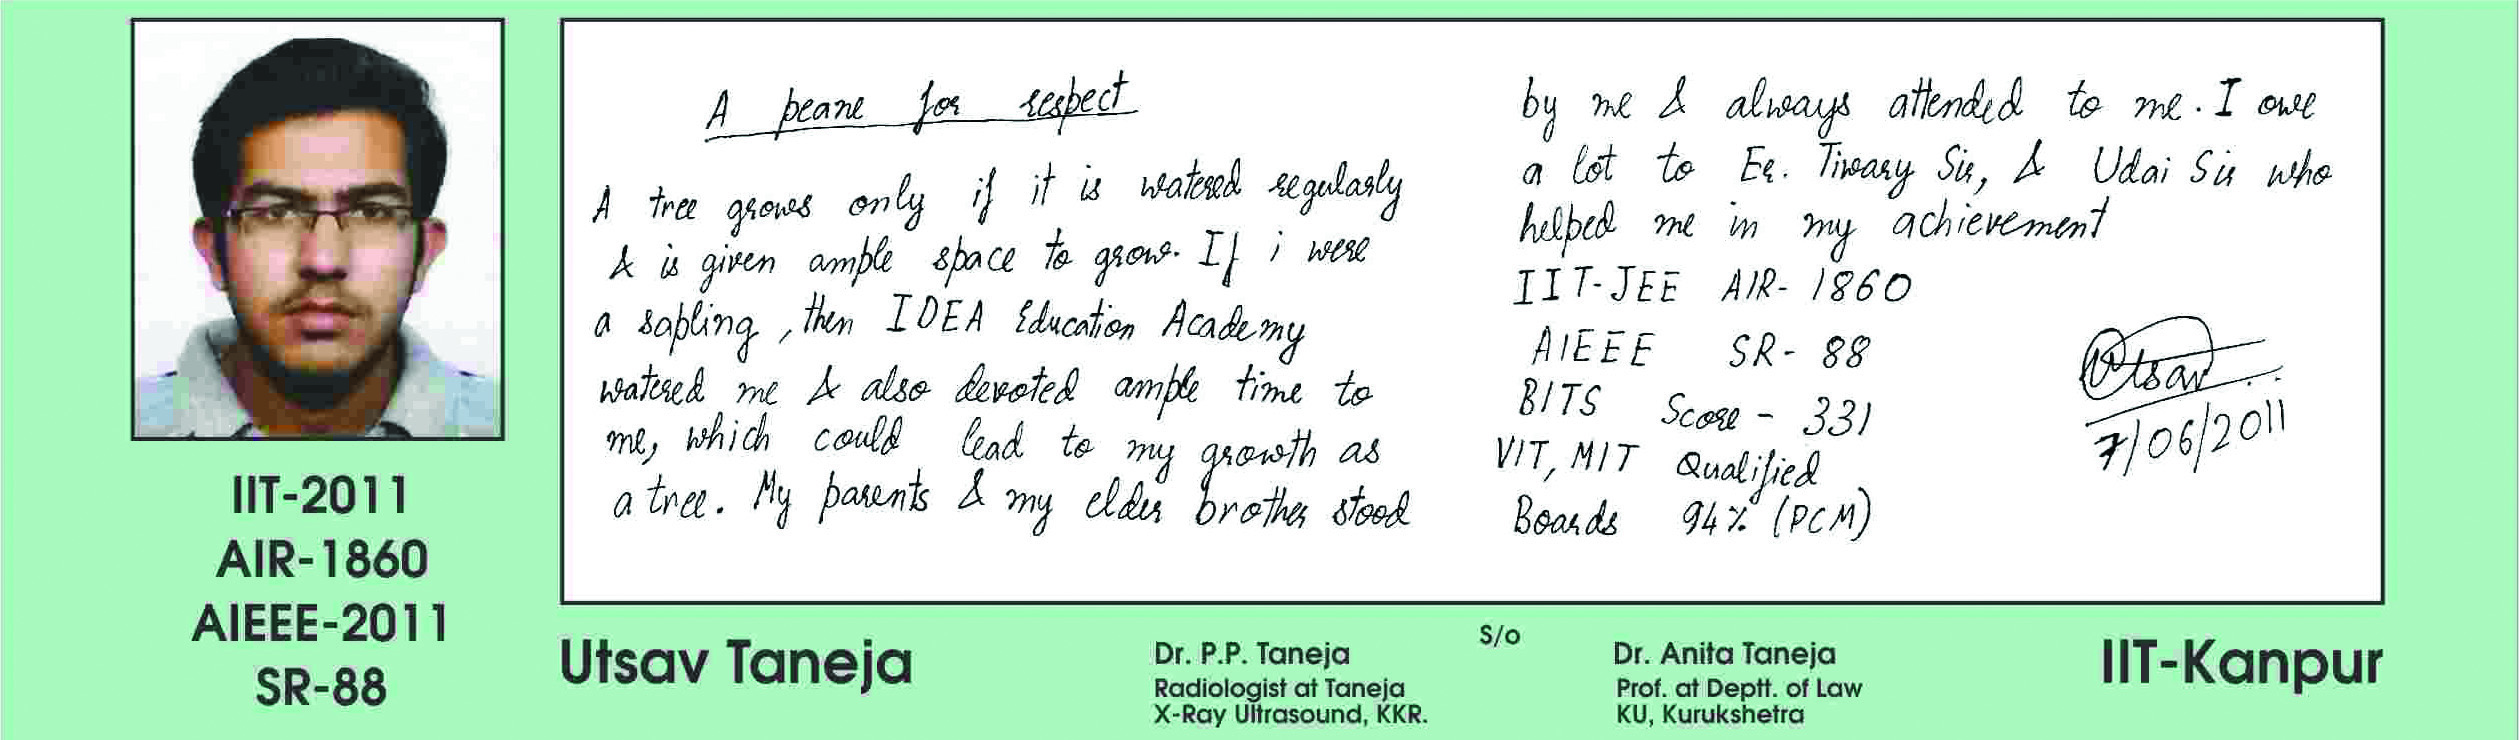 A peane for respect
A tree grows only if it is watered regularly
& is given ample space to grow. If i were
a sapling, then IDEA Education Academy
watered me & also devoted ample time to
me, which could lead to my growth as
a tree. My parents & my elder brother stood
by me & always attended to me. I owe
a lot to Er. Tiwary Sir, & Udai Sir who
helped me in my achievement
IIT-JEE AIR- 1860
AIEEE SR- 88
BITS Score - 331
VIT, MIT Qualified
Boards 94% (PCM)
Utsav
7/06/2011
IIT-2011
AIR-1860
AIEEE-2011
SR-88
Utsav Taneja
S/o
Dr. P.P. Taneja
Radiologist at Taneja
X-Ray Ultrasound, KKR.
Dr. Anita Taneja
Prof. at Deptt. of Law
KU, Kurukshetra
IIT-Kanpur